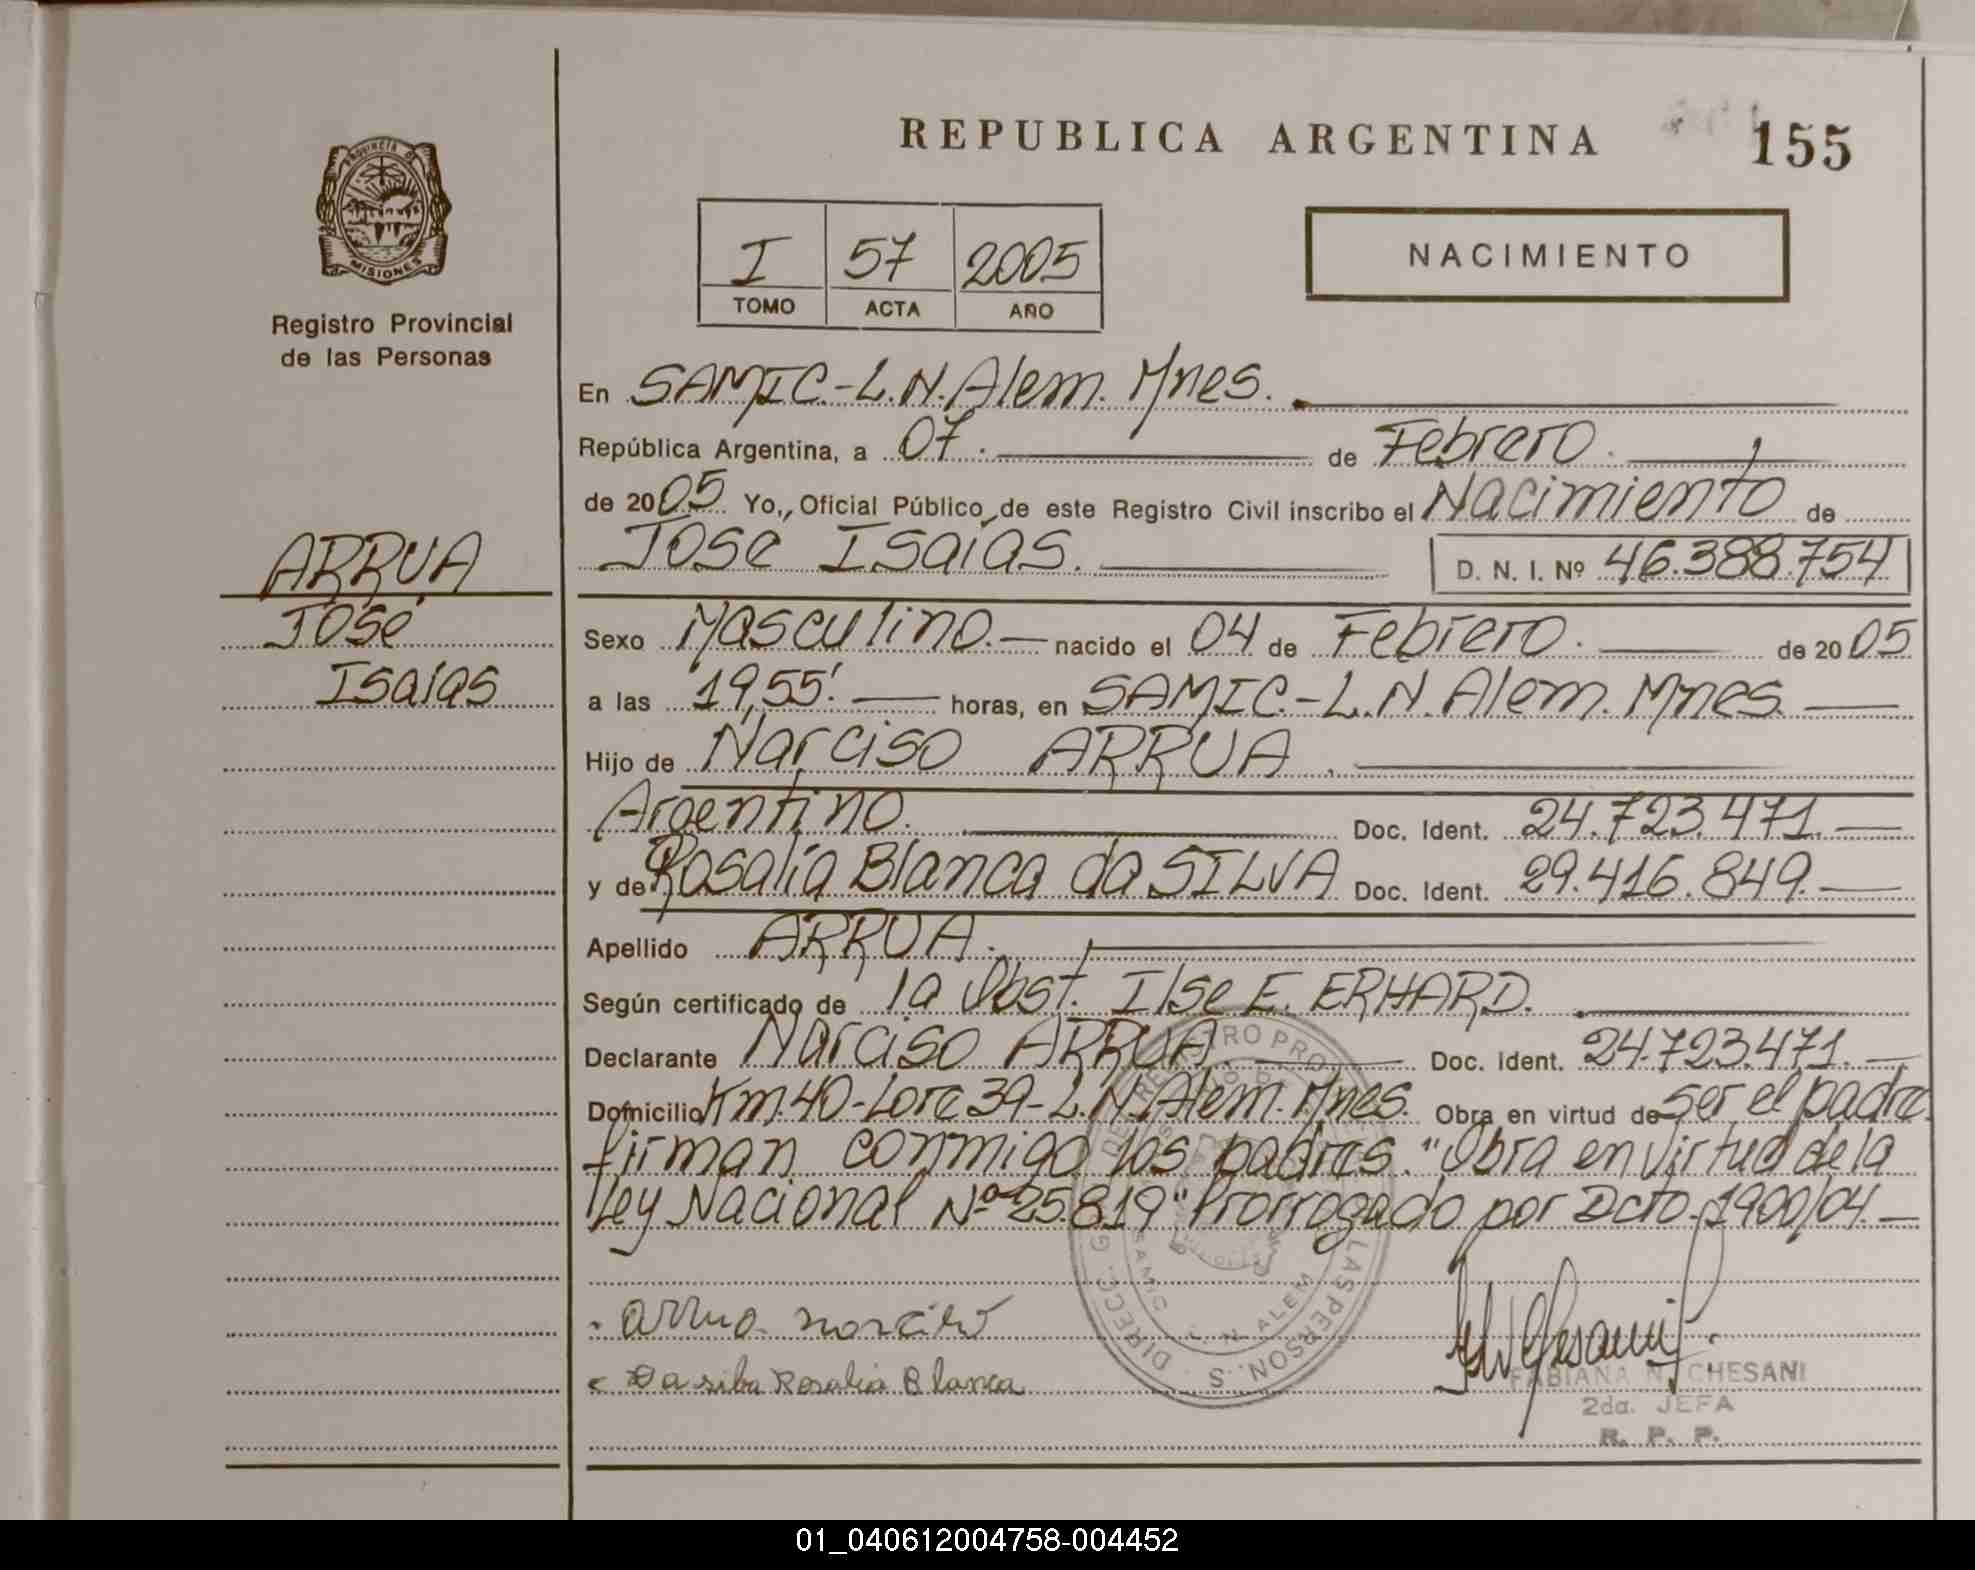 REPUBLICA ARGENTINA
155
PROVINCIA DE
MISIONES
Registro Provincial
de las Personas
I 57 2005
TOMO ACTA AÑO
NACIMIENTO
En SAMIC.-L.N.Alem. Mnes.
República Argentina, a 07. de Febrero.
de 2005 Yo, Oficial Público de este Registro Civil inscribo el Nacimiento de
José Isaías.
D. N. I. Nº 46.388.754
ARRUA
José
Isaías
Sexo Masculino. nacido el 04 de Febrero. de 2005
a las 19,55' horas, en SAMIC.-L.N.Alem. Mnes.
Hijo de Narciso ARRUA.
Argentino. Doc. Ident. 24.723.471.
y de Rosalía Blanca da SILVA Doc. Ident. 29.416.849.
Apellido ARRUA.
Según certificado de la Obst. Ilse E. ERHARD.
Declarante Narciso ARRUA. Doc. Ident. 24.723.471.
Domicilio Km.40-Lote 39-L.N.Alem. Mnes. Obra en virtud de ser el padre
firman conmigo los padres. "Obra en virtud de la
Ley Nacional Nº 25.819" Prorrogado por Dcto. 1900/04.
Arrua narciso
Da silba Rosalia Blanca
SAMIC
L. N. ALEM
FABIANA N. CHESANI
2da. JEFA
R. P. P.
01_040612004758-004452